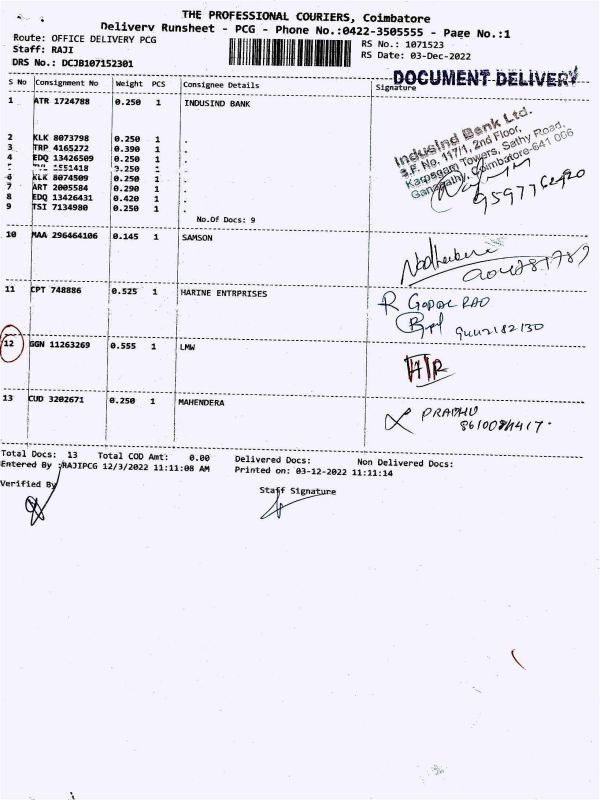 THE PROFESSIONAL COURIERS, Coimbatore
Delivery Runsheet - PCG - Phone No.:0422-3505555 - Page No.:1
Route: OFFICE DELIVERY PCG RS No.: 1071523
Staff: RAJI RS Date: 03-Dec-2022
DRS No.: DCJB107152301
DOCUMENT DELIVERY
S No Consignment No Weight PCS Consignee Details Signature
1 ATR 1724788 0.250 1 INDUSIND BANK
2 KLK 8073798 0.250 1 .
3 TRP 4165272 0.390 1 .
4 EDQ 13426509 0.250 1 .
5 1551418 0.250 1 .
6 KLK 8074509 0.250 1 .
7 ART 2005584 0.290 1 .
8 EDQ 13426431 0.420 1 .
9 TSI 7134980 0.250 1 .
No.Of Docs: 9
IndusInd Bank Ltd.
S.F. No. 117/1, 2nd Floor,
Karpagam Towers, Sathy Road,
Ganapathy, Coimbatore-641 006
10 MAA 296464106 0.145 1 SAMSON
11 CPT 748886 0.525 1 HARINE ENTRPRISES
R GOPAL RAO
9442182130
12 GGN 11263269 0.555 1 LMW
13 CUD 3202671 0.250 1 MAHENDERA
PRABHU
Total Docs: 13 Total COD Amt: 0.00 Delivered Docs: Non Delivered Docs:
Entered By :RAJIPCG 12/3/2022 11:11:08 AM Printed on: 03-12-2022 11:11:14
Verified By
Staff Signature